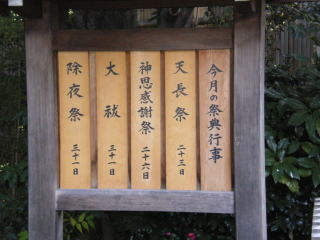 今月の祭典行事
天長祭 二十三日
神恩感謝祭 二十六日
大祓 三十一日
除夜祭 三十一日